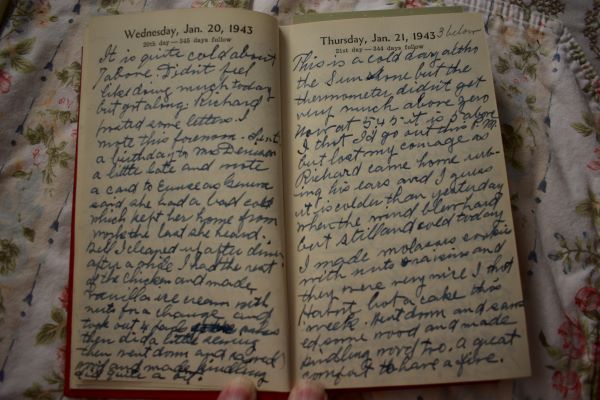 Wednesday, Jan. 20, 1943
20th day—345 days follow
It is quite cold about
1 above. I didn't feel
like doing much today
but got along. Richard
posted some letters I
wrote this forenoon. Sent
a birthday to Mrs Denison
a little late and wrote
a card to Eunice as
said she had a bad cold
which kept her home from
work the last she heard.
Well I cleaned up after dinner
after a while I had the rest
of the chicken and made
vanilla ice cream with
nuts for a change and
took out 4 pago
then did a little sewing
then went down and sawed
wood and made kindling
did quite a bit.
Thursday, Jan. 21, 1943 3 below
21st day—344 days follow
This is a cold day, altho
the Sun shone but the
thermometer didn't get
very much above zero
Now at 545 it is 5 above
I that I'd go out this P.M.
but lost my courage as
Richard came home rub-
ing his ears and I guess
it is colder than yesterday
when the wind blew hard
but still and cold today
I made molasses cookies
with nuts & raisins and
they were very nice I that
Havnt had a cake this
week. Went down and saw-
ed some wood and made
kindling wood too. A great
comfort to have a fire.